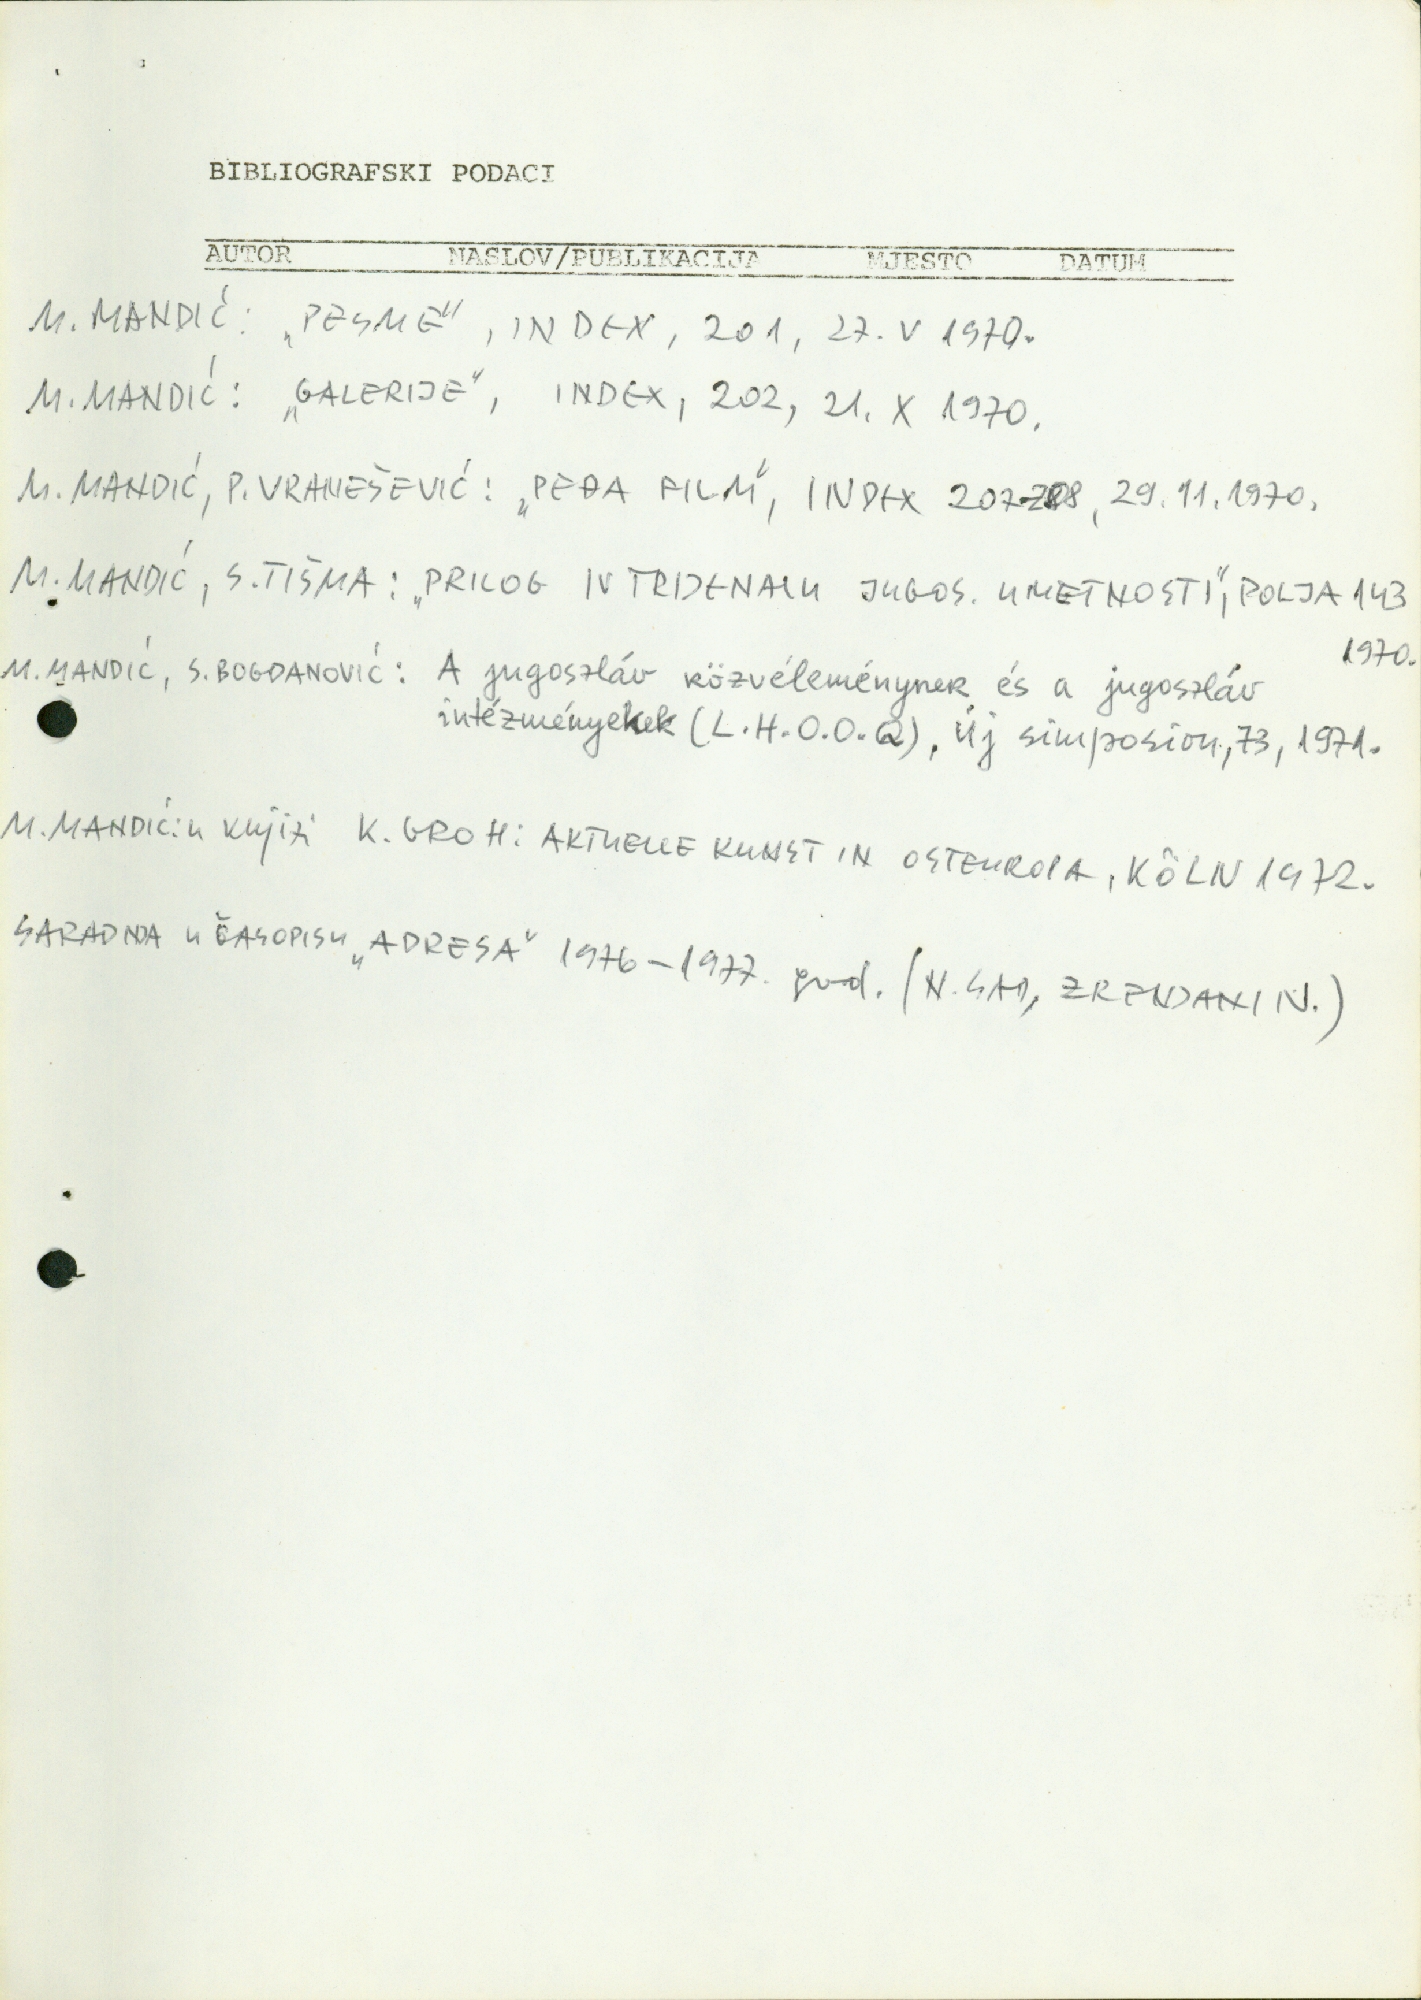 BIBLIOGRAFSKI PODACI
AUTOR NASLOV/PUBLIKACIJA MJESTO DATUM
M. MANDIĆ: „PESME“, INDEX, 201, 27. V 1970.
M. MANDIĆ: „GALERIJE“, INDEX, 202, 21. X 1970.
M. MANDIĆ, P. VRANEŠEVIĆ: „PEĐA FILM“, INDEX 207-208, 29.11.1970.
M. MANDIĆ, S. TIŠMA: „PRILOG IV TRIJENALU JUGOS. UMETNOSTI“, POLJA 143
1970.
M. MANDIĆ, S. BOGDANOVIĆ: A jugoszláv közvéleménynek és a jugoszláv
intézményeknek (L.H.O.O.Q), Új simposion, 73, 1971.
M. MANDIĆ: u knjizi K. GROH: AKTUELLE KUNST IN OSTEUROPA, KÖLN 1972.
SARADNJA u ČASOPISU „ADRESA“ 1976-1977. god. (N. SAD, ZRENJANIN.)